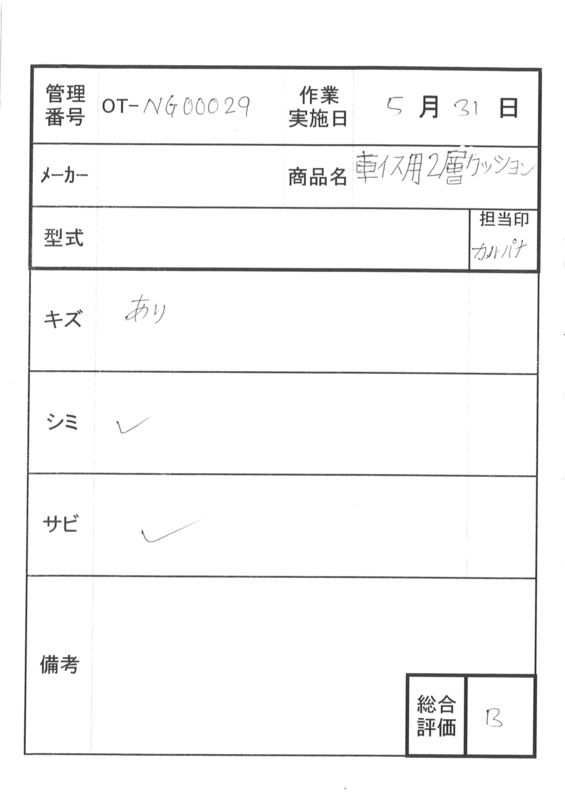 管理番号 OT-NG00029 作業実施日 5月31日
メーカー 商品名 車イス用2層クッション
型式 担当印 カルパナ
キズ あり
シミ ✓
サビ ✓
備考
総合評価 B